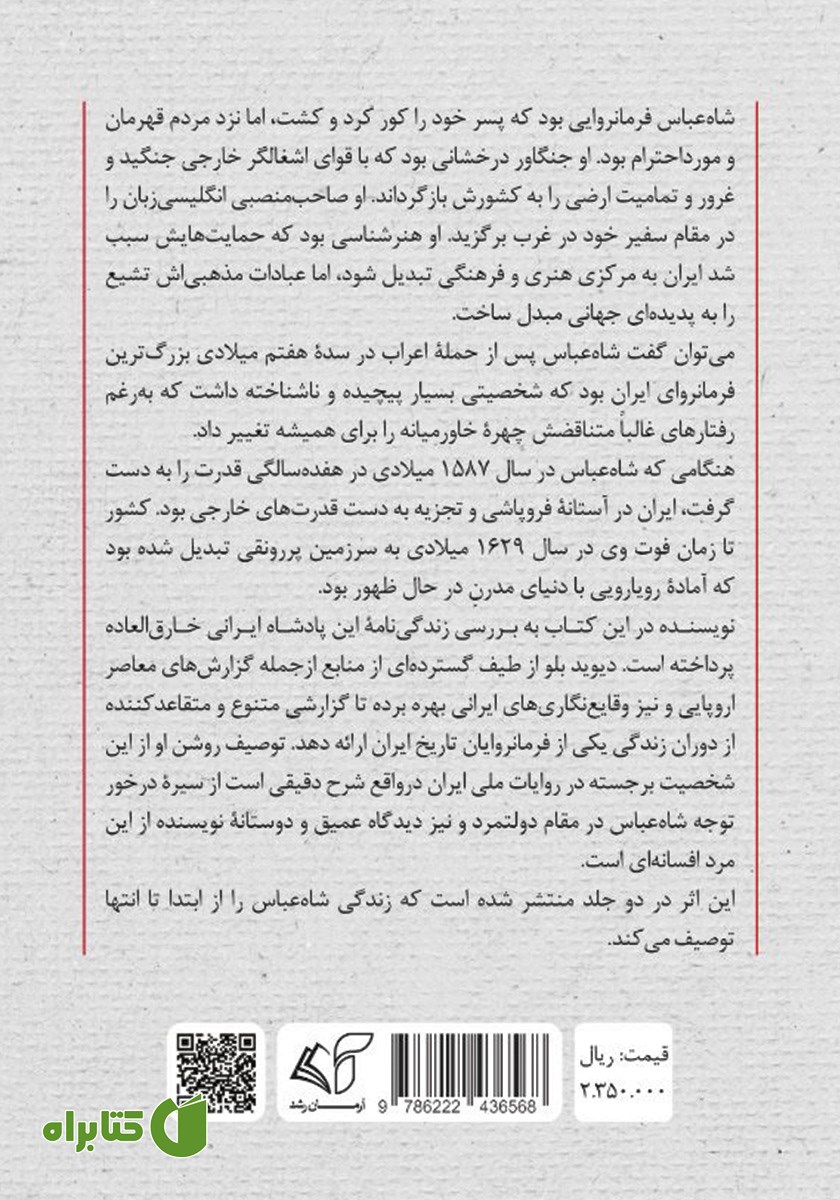 شاه‌عباس فرمانروایی بود که پسر خود را کور کرد و کشت، اما نزد مردم قهرمان
و مورداحترام بود. او جنگاور درخشانی بود که با قوای اشغالگر خارجی جنگید و
غرور و تمامیت ارضی را به کشورش بازگرداند. او صاحب‌منصبی انگلیسی‌زبان را
در مقام سفیر خود در غرب برگزید. او هنرشناسی بود که حمایت‌هایش سبب
شد ایران به مرکزی هنری و فرهنگی تبدیل شود، اما عبادات مذهبی‌اش تشیع
را به پدیده‌ای جهانی مبدل ساخت.
می‌توان گفت شاه‌عباس پس از حملهٔ اعراب در سدهٔ هفتم میلادی بزرگ‌ترین
فرمانروای ایران بود که شخصیتی بسیار پیچیده و ناشناخته داشت که به‌رغم
رفتارهای غالباً متناقضش چهرهٔ خاورمیانه را برای همیشه تغییر داد.
هنگامی که شاه‌عباس در سال ۱۵۸۷ میلادی در هفده‌سالگی قدرت را به دست
گرفت، ایران در آستانهٔ فروپاشی و تجزیه به دست قدرت‌های خارجی بود. کشور
تا زمان فوت وی در سال ۱۶۲۹ میلادی به سرزمین پررونقی تبدیل شده بود
که آمادهٔ رویارویی با دنیای مدرنِ در حال ظهور بود.
نویسنده در این کتاب به بررسی زندگی‌نامهٔ این پادشاه ایرانی خارق‌العاده
پرداخته است. دیوید بلو از طیف گسترده‌ای از منابع ازجمله گزارش‌های معاصر
اروپایی و نیز وقایع‌نگاری‌های ایرانی بهره برده تا گزارشی متنوع و متقاعدکننده
از دوران زندگی یکی از فرمانروایان تاریخ ایران ارائه دهد. توصیف روشن او از این
شخصیت برجسته در روایات ملی ایران درواقع شرح دقیقی است از سیرهٔ درخور
توجه شاه‌عباس در مقام دولتمرد و نیز دیدگاه عمیق و دوستانهٔ نویسنده از این
مرد افسانه‌ای است.
این اثر در دو جلد منتشر شده است که زندگی شاه‌عباس را از ابتدا تا انتها
توصیف می‌کند.
قیمت: ریال
۲.۳۵۰.۰۰۰
9 786222 436568
آرمان رشد
کتابراه